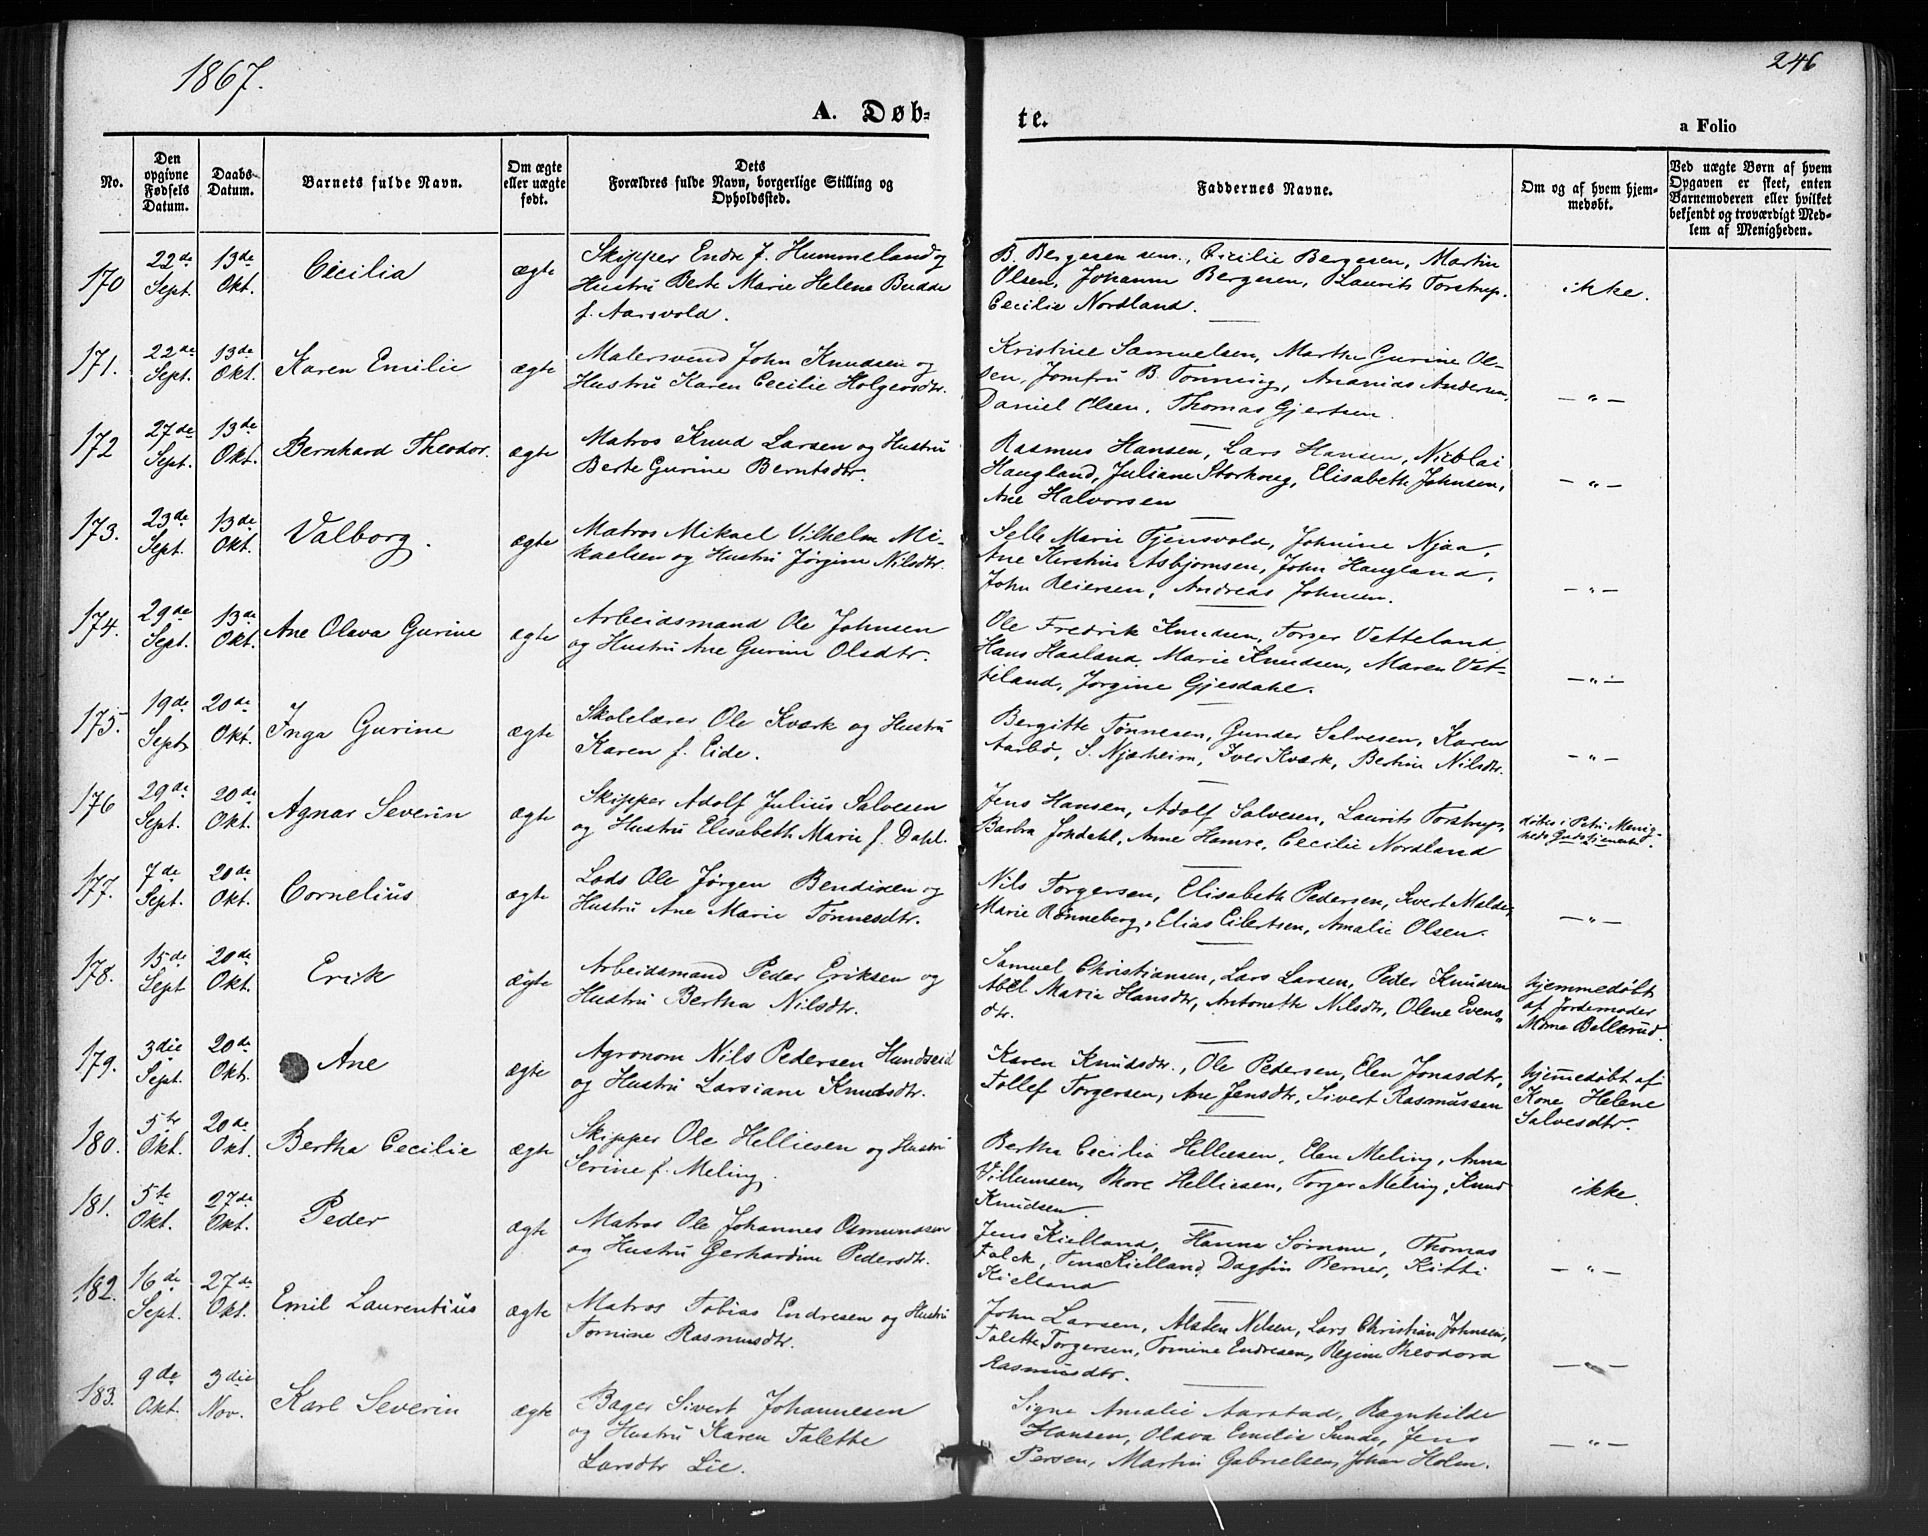 1867.
246
A. Døb-
te.
a Folio
No.
Den opgivne Fødsels Datum.
Daabs Datum.
Barnets fulde Navn.
Om ægte eller uægte født.
Dets Forældres fulde Navn, borgerlige Stilling og Opholdssted.
Faddernes Navne.
Om og af hvem hjemmedøbt.
Ved uægte Børn af hvem Opgaven er skeet, enten Barnemoderen eller hvilket bekjendt og troværdigt Medlem af Menigheden.
170 22de Sept. 13de Okt. Cecilia ægte
Skipper Endre f. Hummeland og
Hustru Berte Marie Helene Budde
f. Aarsvold.
B. Bergesen sen., Cicilie Bergesen, Martin
Olsen, Johanne Bergesen, Laurits Torstrup.
Cecilie Nordland.
ikke.
171. 22de Sept. 13de Okt. Karen Emilie ægte
Malersvend John Knudsen og
Hustru Karen Cecilie Holgersdtr.
Kristine Samuelsen, Marthe Gurine Ol-
sen, Jomfru B. Tonning, Ananias Andersen,
Daniel Olsen, Thomas Gjertsen.
— „ —
172 27de Sept. 13de Okt. Bernhard Theodor. ægte
Matros Knud Larsen og Hustru
Berte Gurine Berntsdtr.
Rasmus Hansen, Lars Hansen, Nicolai
Haugland, Juliane Storhoug, Elisabeth Johnsen,
Ane Halvorsen
— „ —
173. 23de Sept. 13de Okt. Valborg. ægte
Matros Mikael Vilhelm Mi-
kaelsen og Hustru Jørgine Nilsdtr.
Selle Marie Tjensvold, Johnine Njaa,
Ane Kirstine Asbjørnsen, John Haugland,
John Reiersen, Andreas Johnsen.
— „ —
174. 29de Sept. 13de Okt. Ane Olava Gurine ægte
Arbeidsmand Ole Johnsen
og Hustru Ane Gurine Olsdtr.
Ole Fredrik Knudsen, Torger Vetteland
Hans Haaland, Marie Knudsen, Maren Vet-
teland, Jørgine Gjesdahl.
— „ —
175. 19de Sept. 20de Okt. Inga Gurine ægte
Skolelærer Ole Kværk og Hustru
Karen f. Eide.
Bergitte Tønnesen, Gunder Salvesen, Karen
Aarbø, S. Njærheim, Iver Kværk, Bertine Nilsdtr.
— „ —
176 29de Sept. 20de Okt. Agnar Severin ægte
Skipper Adolf Julius Salvesen
og Hustru Elisabeth Marie f. Dahl.
Jens Hansen, Adolf Salvesen, Laurits Torstrup,
Barbra Jokdahl, Anne Hamre, Cecilie Nordland
døbt i Petri Menig-
heds Gudstjeneste.
177. 7de Sept. 20de Okt. Cornelius ægte
Lods Ole Jørgen Bendixen og
Hustru Ane Marie Tønnesdtr.
Nils Torgersen, Elisabeth Pedersen, Sivert Malde,
Marie Rønneberg, Elias Eilertsen, Amalie Olsen.
— „ —
178. 15de Sept 20de Okt. Erik ægte
Arbeidsmand Peder Eriksen og
Hustru Bertha Nilsdtr.
Samuel Christiansen, Lars Larsen, Peder Knudsen
Abel Maria Hansdtr, Antonette Nilsdtr, Olene Evens-
dtr.
hjemmedøbt
af Jordemoder
Mina Bellerud.
179. 3die Sept. 20de Okt. Ane ægte
Agronom Nils Pedersen Hundseid
og Hustru Larsiane Knudsdtr.
Karen Knudsdtr., Ole Pedersen, Elen Jonasdtr,
Tollef Torgersen, Ane Jensdtr, Sivert Rasmussen
hjemmedøbt af
Kone Helene
Salvesdtr.
180. 5te Okt. 20de Okt. Bertha Cecilie ægte
Skipper Ole Helliesen og Hustru
Serine f. Meling.
Bertha Cecilia Helliesen, Elen Meling, Anna
Villumsen, Thore Helliesen, Torger Meling, Knud
Knudsen.
ikke.
181. 5te Okt. 27de Okt. Peder ægte
Matros Ole Johannes Osmundsen
og Hustru Gerhardine Pedersdtr.
Jens Kielland, Hanna Sømme, Thomas
Falck, Tina Kielland, Dagfin Berner, Kitti
Kielland
— „ —
182. 16de Sept. 27de Okt. Emil Laurentius ægte
Matros Tobias Endresen og Hustru
Tomine Rasmusdtr.
John Larsen, Nilsen, Lars Christian Johnsen,
Talette Torgersen, Tomine Endresen, Regine Theodora
Rasmusdtr.
— „ —
183. 9de Okt. 3die Nov. Karl Severin ægte
Bager Sivert Johannesen
og Hustru Karen Talette
Larsdtr Lie.
Signe Amalie Aarstad, Ragnhilde
Hansen, Olava Emilie Sunde, Jens
Persen, Martin Gabrielsen, Johan Holm.
— „ —